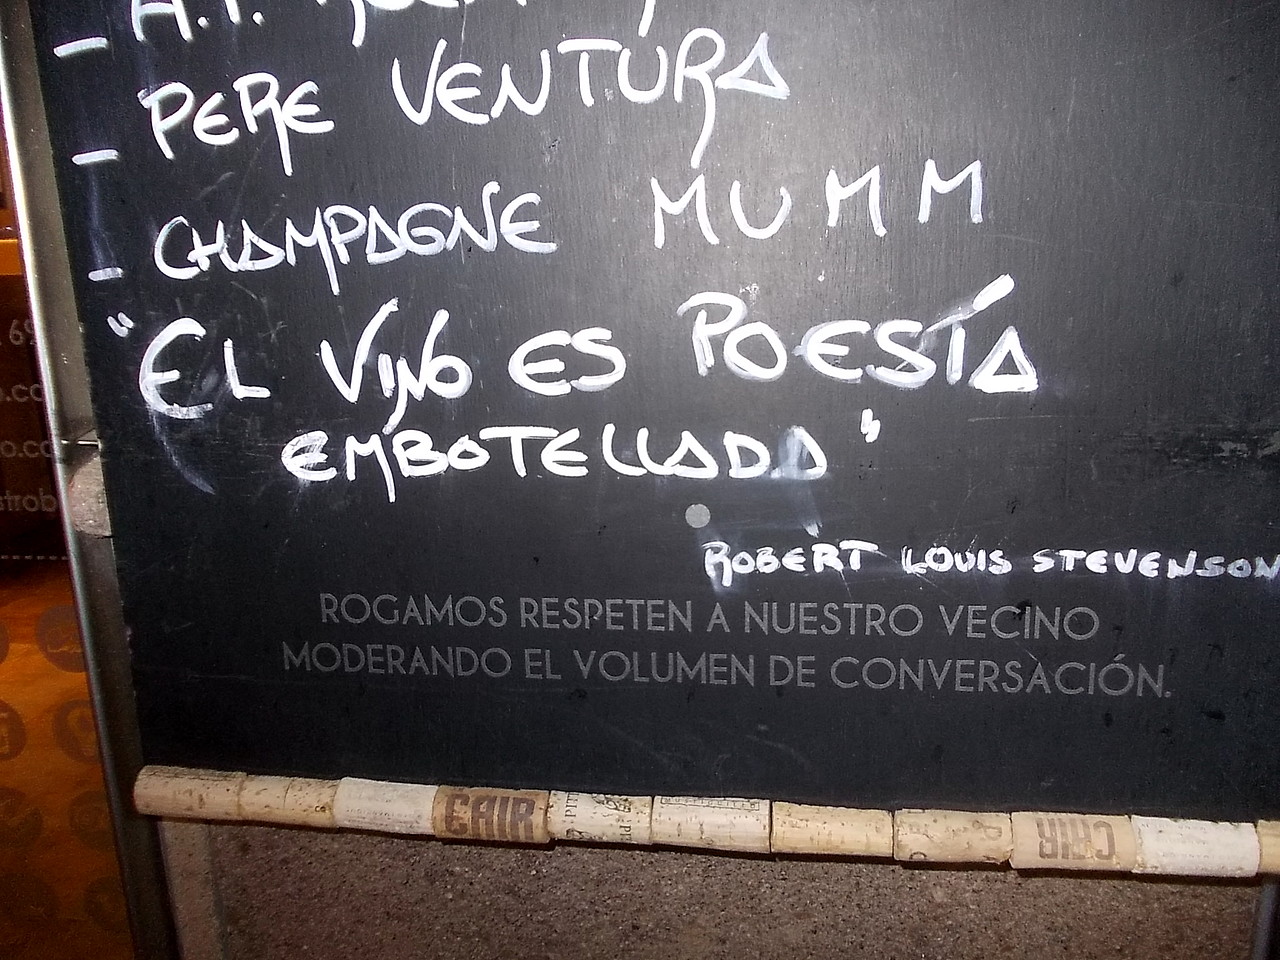 - PERE VENTURA
- CHAMPAGNE MUMM
"EL VINO ES POESÍA
EMBOTELLADA"
ROBERT LOUIS STEVENSON
ROGAMOS RESPETEN A NUESTRO VECINO
MODERANDO EL VOLUMEN DE CONVERSACIÓN.
CAIR
CAIR